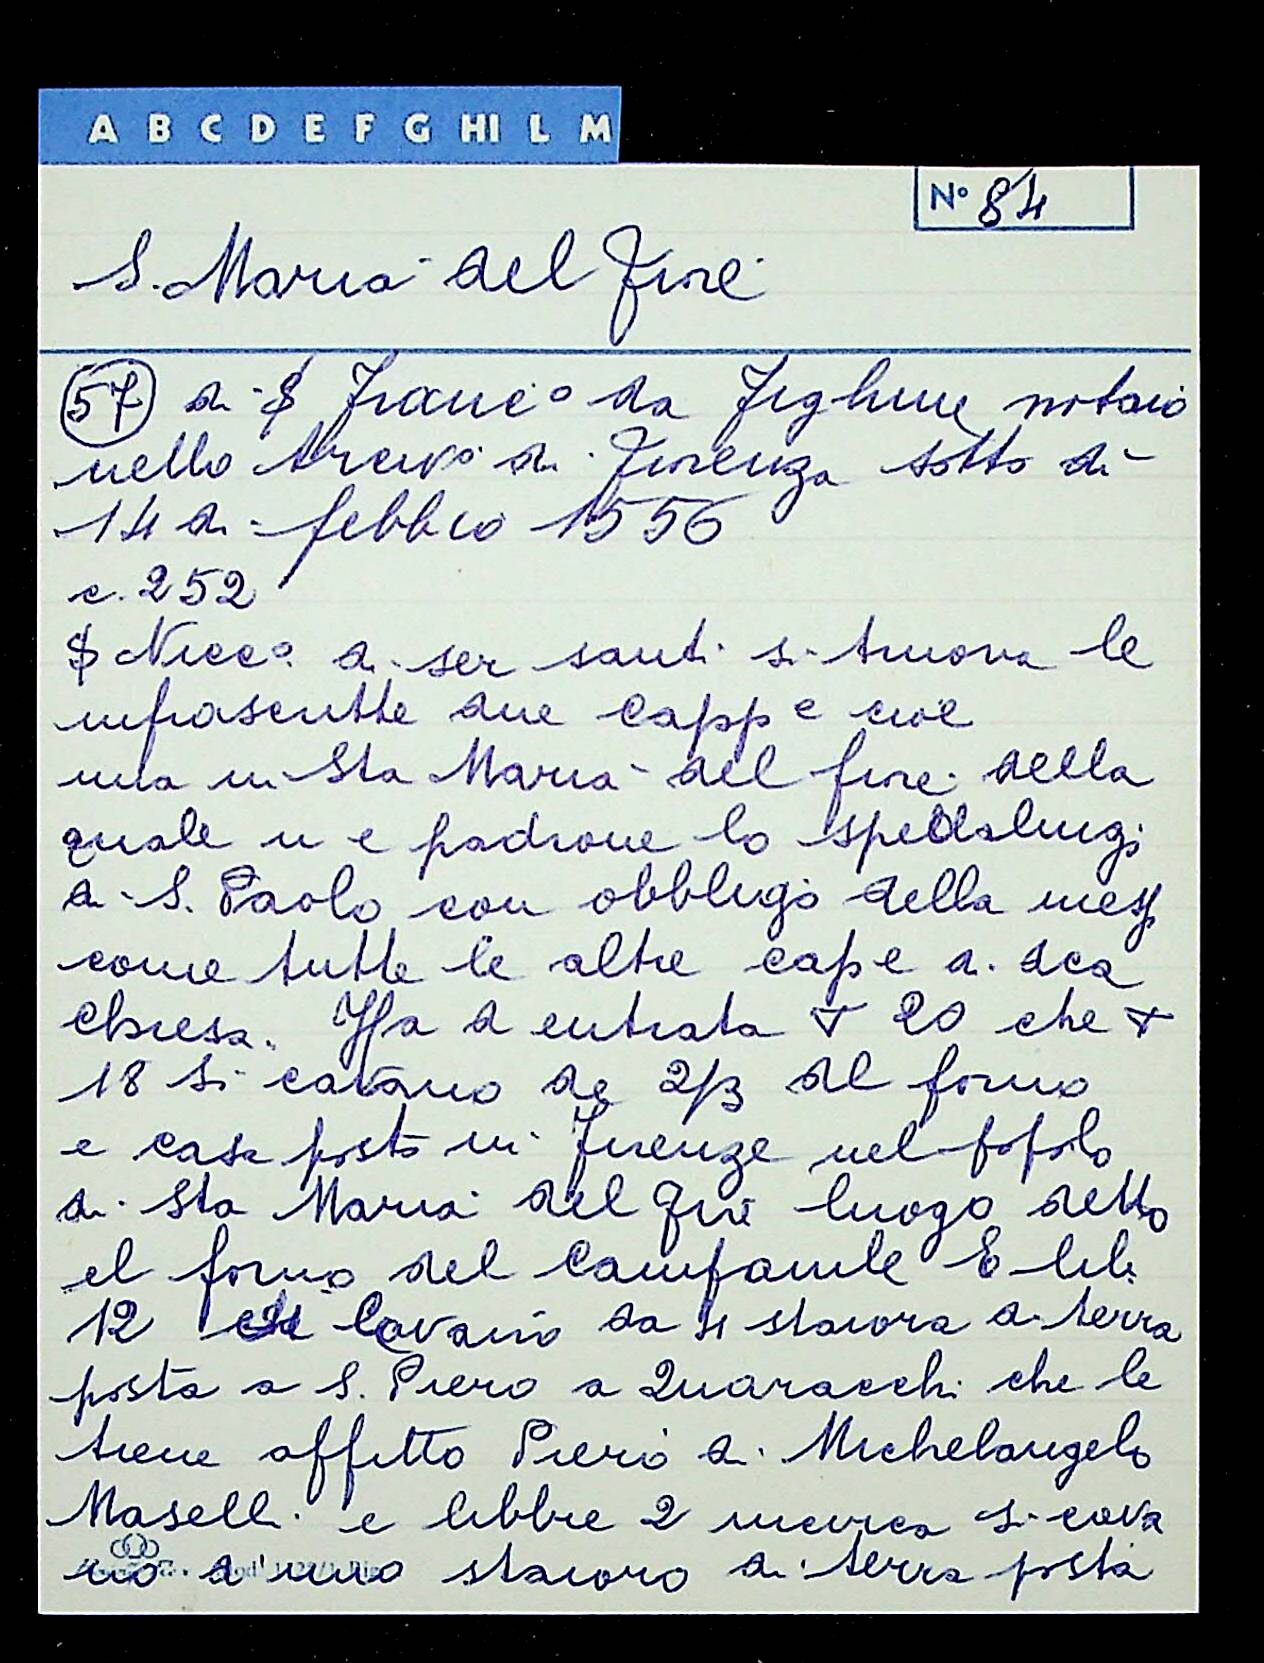 A B C D E F G HI L M
N° 84
S. Maria del Fiore
57 di S Franc° da Fighine notaio
nello Arcivo di Fiorenza sotto di
14 di febbio 1556
c. 252
S Nicc° di ser santi si truova le
infrascritte due capp e cioe
una in Sta Maria del fiore della
quale n e padrone lo spedalingi
di S. Paolo con obbligo della mess
come tutte le altre cap e di dca
chiesa. Ha d entrata ▽ 20 che ▽
18 si cavano de 2/3 del forno
e casa posto in Firenze nel popolo
di Sta Maria del Fiore luogo detto
el forno del Campanile E lib.
12 cavano da 4 staiora di terra
posta a S. Piero a Quaracchi che le
tiene affitto Piero di Michelangelo
Maselli e libbre 2 si cava
no d uno staioro di terra posta